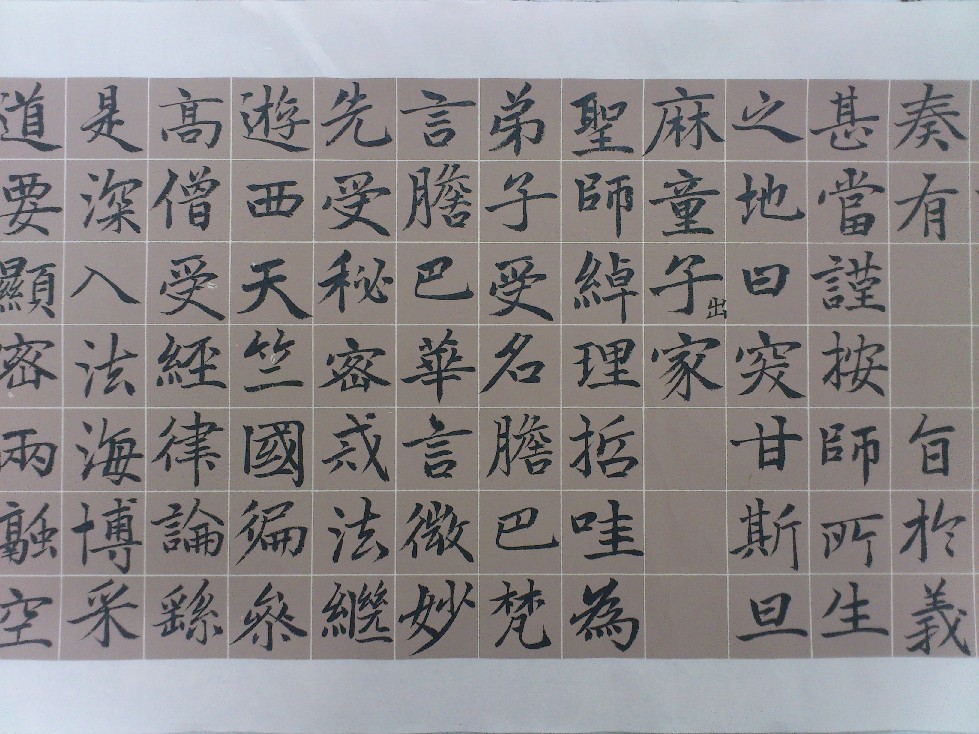 奏有　　旨於義
甚當謹按師所生
之地曰突甘斯旦
麻童子出家
聖師綽理哲哇為
弟子受名膽巴梵
言膽巴華言微妙
先受秘密戒法繼
遊西天竺國徧參
高僧受經律論繇
是深入法海博采
道要顯密兩融空